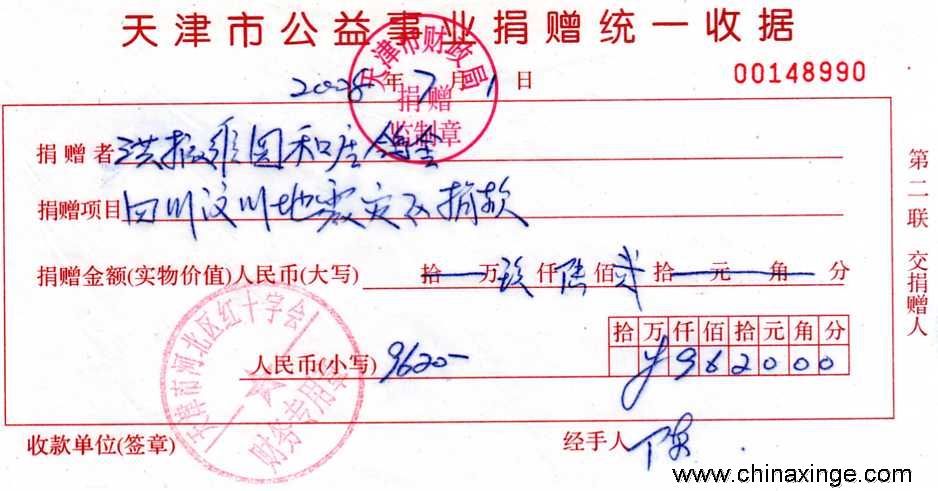 天津市公益事业捐赠统一收据
2008年7月1日
00148990
天津市财政局
捐赠
监制章
捐赠者 洪振维园和庄鸽舍
捐赠项目 四川汶川地震灾区捐款
捐赠金额(实物价值)人民币(大写) 拾万玖仟陆佰贰拾元角分
拾万仟佰拾元角分
人民币(小写) 9620- ¥962000
天津市河北区红十字会
财务专用章
收款单位(签章) 经手人
第二联 交捐赠人
www.chinaxinge.com